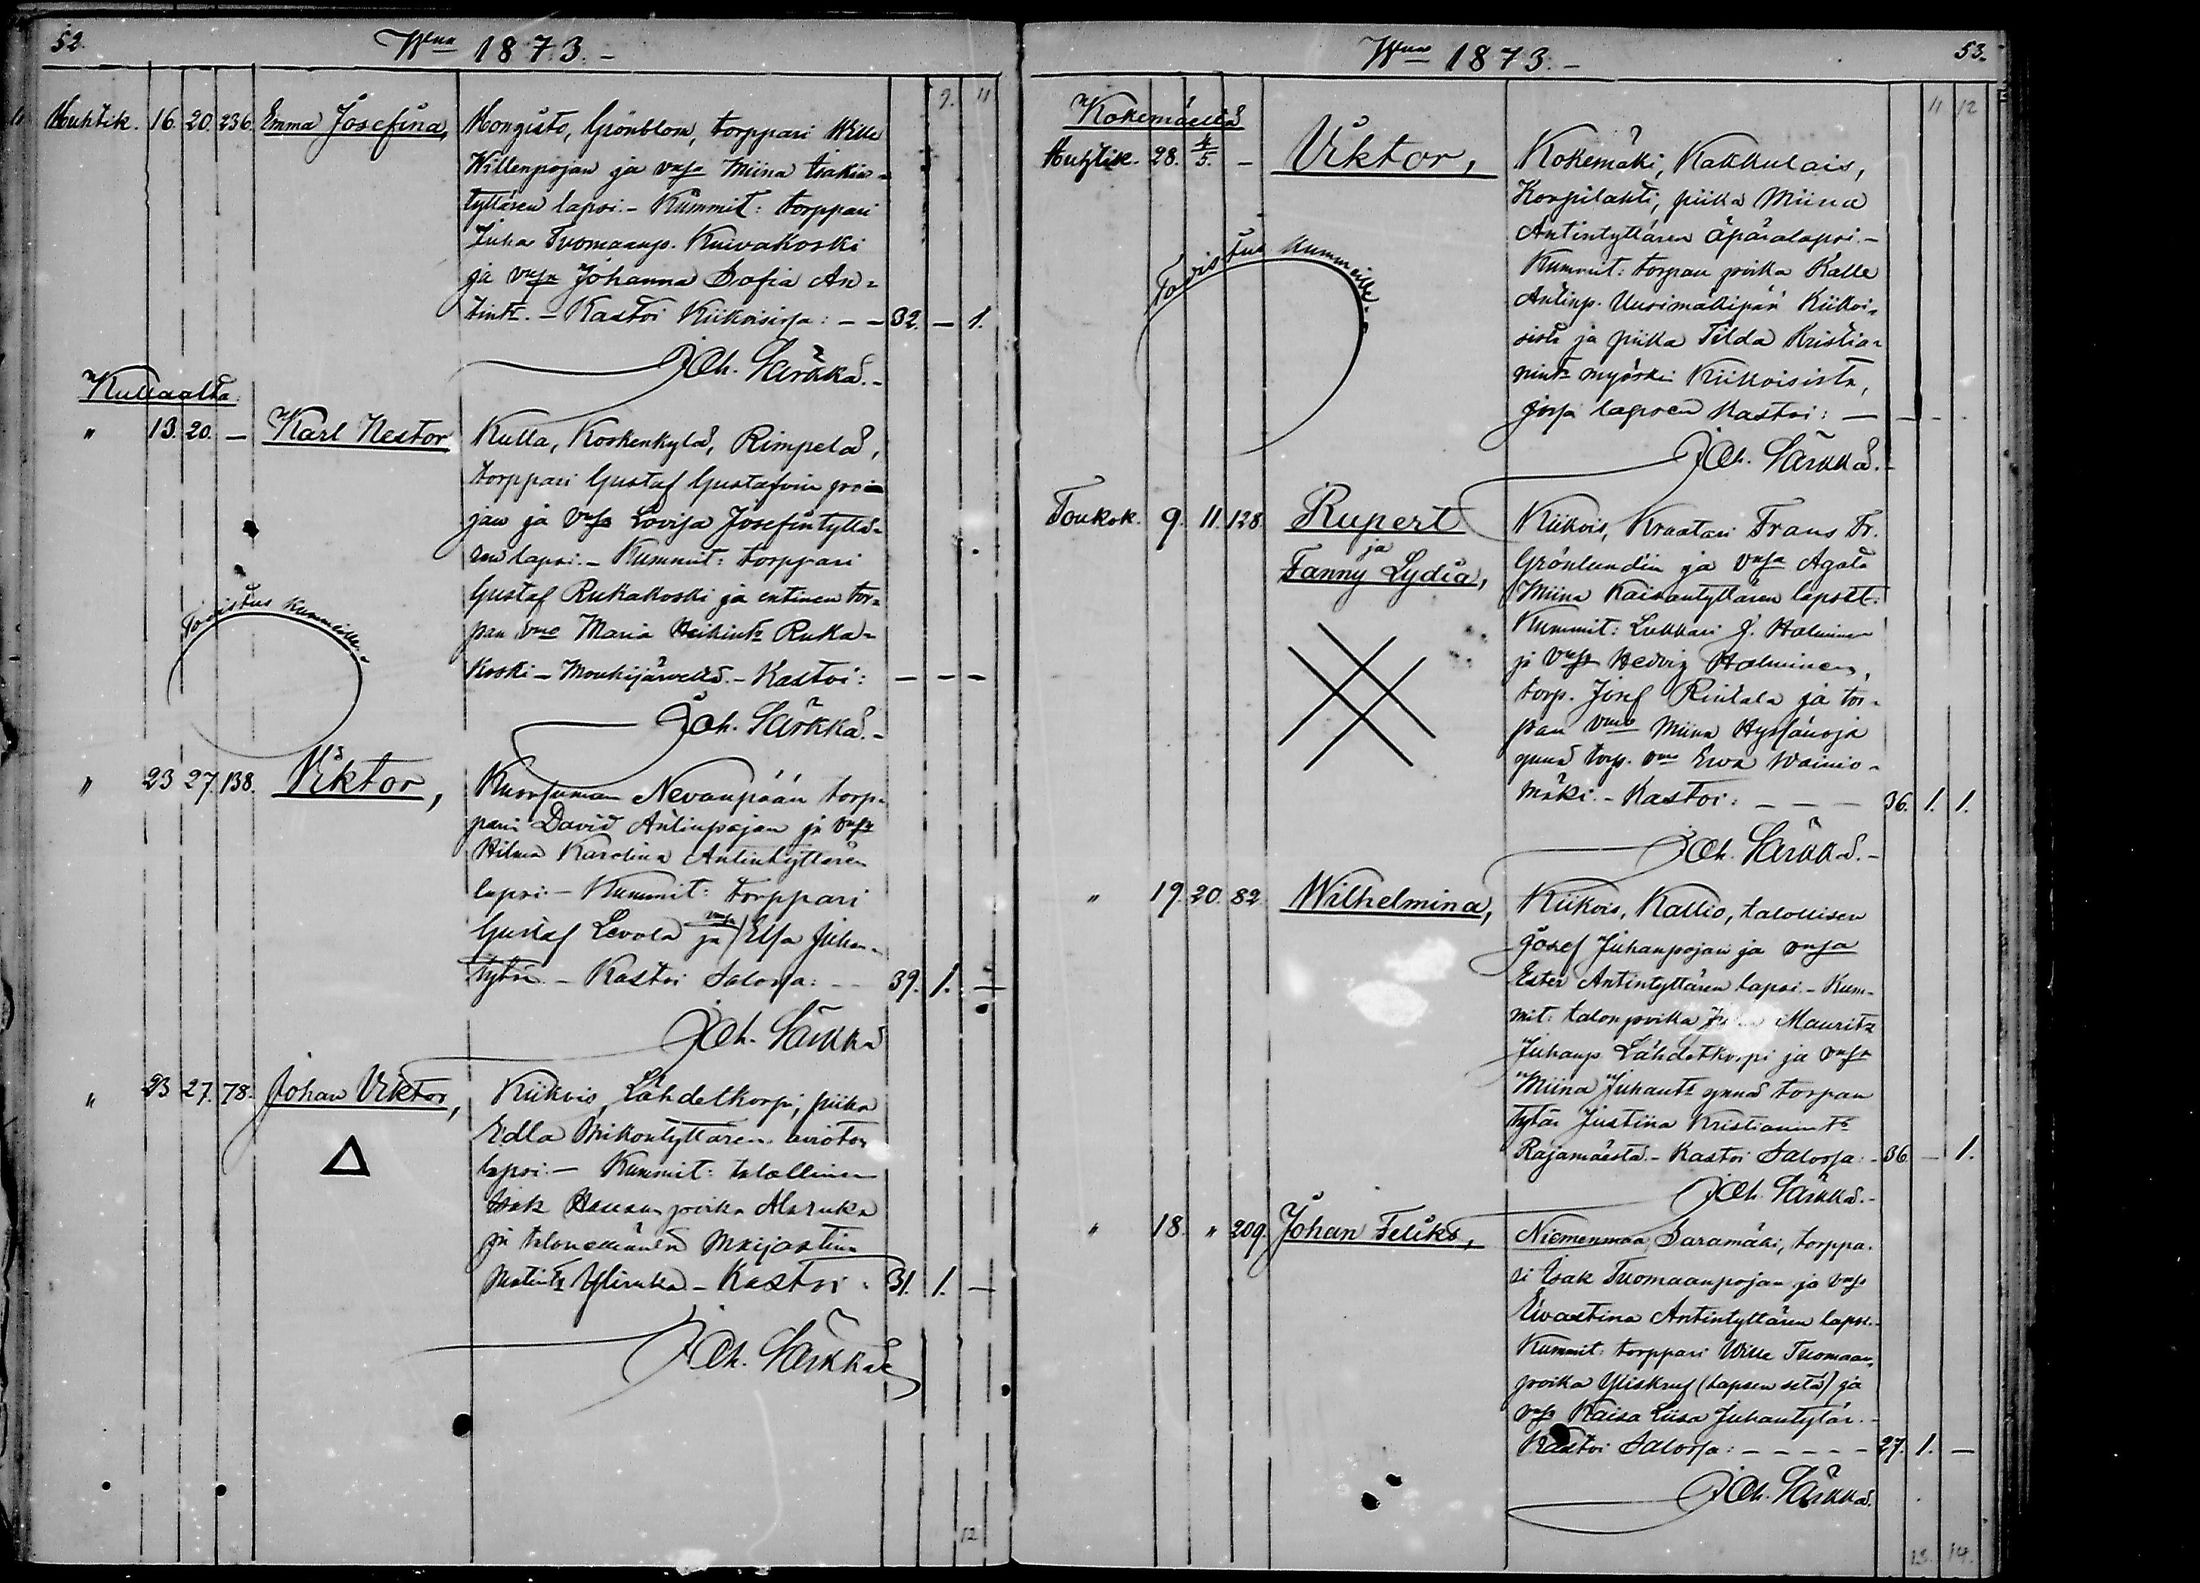 52.
Wuna 1873.-
9. 11
Huhtik. 16. 20. 236. Emma Josefina, Mongisto, Grönblom, torppari Wille
Willenpojan ja vnsa Miina Isakin-
tyttären lapsi.- Kummit: torppari
Juha Tuomaanp. Kuivakoski
ja vnsa Johanna Sofia An-
tint. - Kastoi Kiikoisissa: - - 32. - 1.
Joh. Särkkä.-
Kullaalta:
" 13. 20. - Karl Nestor Kulla, Koskenkylä, Rimpelä,
torppari Gustaf Gustafvin poi-
jan ja vnsa Lovisa Josefintyttä-
ren lapsi.- Kummit: torppari
Gustaf Rukakoski ja entinen tor-
pan vmo Maria Heikint. Ruka-
koski - Mouhijärvellä. - Kastoi: - - -
Todistus kummeille.
Joh. Särkkä.-
" 23 27. 138. Viktor, Nevanpään torp-
pari David Antinpojan ja vnsa
Hilma Karolina Antintyttären
lapsi - Kummit: torppari
Gustaf Levola ja vnsa Elsa Juhan-
tytär. - Kastoi Salossa: - - 39. 1. -
Joh. Särkkä
" 23 27. 78. Johan Viktor, Kiikois, Lähdetkorpi, piika
Edla Mikontyttären aviotoin
lapsi.- Kummit: talollinen
Isak poika
ja Maijastina
Matint. - Kastoi: 31. 1. -
Joh. Särkkä
12
Wuna 1873.-
53.
11 12
Kokemäeltä
Huhtik. 28. 4/5. - Viktor, Kokemäki, Kakkulais,
Korpilahti, piika Miina
Antintyttären äpärälapsi.-
Kummit: torpan poika Kalle
Antinp. Uusimäkipää Kiikoi-
sista ja piika Tilda Kristia-
nint. myöski Kiikoisista,
jossa lapsen kastoi: - - -
Todistus kummeille.
Joh. Särkkä.-
Toukok. 9. 11. 128. Rupert Kiikois, Kraatari Frans Fr.
ja
Fanny Lydia, Grönlundin ja vnsa Agata
Miina Kaisantyttären lapset.
Kummit: Lukkari J. Halminen
ja vnsa Hedvig Halminen,
torp. Josef Rintala ja tor-
pan vmo Miina Hyssänoja
ynnä torp. vmo Ewa Wainio-
mäki. - Kastoi: - - - 36. 1. 1.
Joh. Särkkä.-
" 19. 20. 82. Wilhelmina, Kiikois, Kallio, talollisen
Josef Juhanpojan ja vnsa
Ester Antintyttären lapsi.- Kum-
mit: talonpoika Mauritz
Juhanp. Lähdetkorpi ja vnsa
Miina Juhant. ynnä torpan
tytär Justiina Kristianint.
Rajamäestä.- Kastoi Salossa: - 36 - 1.
Joh. Särkkä.-
" 18. " 209. Johan Feliks, Niemenmaa, Saramäki, torppa-
ri Isak Tuomaanpojan ja vnsa
Ewastina Antintyttären lapsi.
Kummit: torppari Wille Tuomaan-
poika Yliskruf (lapsen setä) ja
vnsa Kaisa Liisa Juhantytär.-
Kastoi Salossa: - - - - - 27. 1. -
Joh. Särkkä.
13. 14.